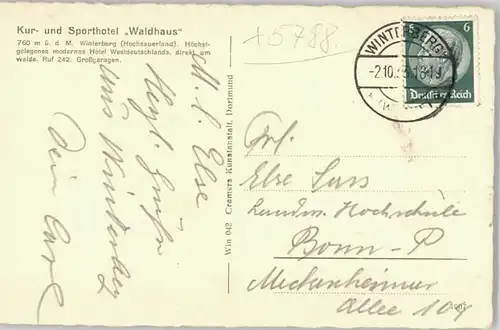 Kur- und Sporthotel „Waldhaus"
760 m ü. d. M. Winterberg (Hochsauerland). Höchst-
gelegenes modernes Hotel Westdeutschlands, direkt am
walde. Ruf 242. Großgaragen.
+5788.
WINTERBERG
-2.10.
6
6
Deutsches Reich
M. l. Else
Herzl. Grüße
aus Winterberg
Dein Carl
Win 042 Cramers Kunstanstalt, Dortmund
Frl.
Else Sass
Landw. Hochschule
Bonn-P
Meckenheimer
Allee 104